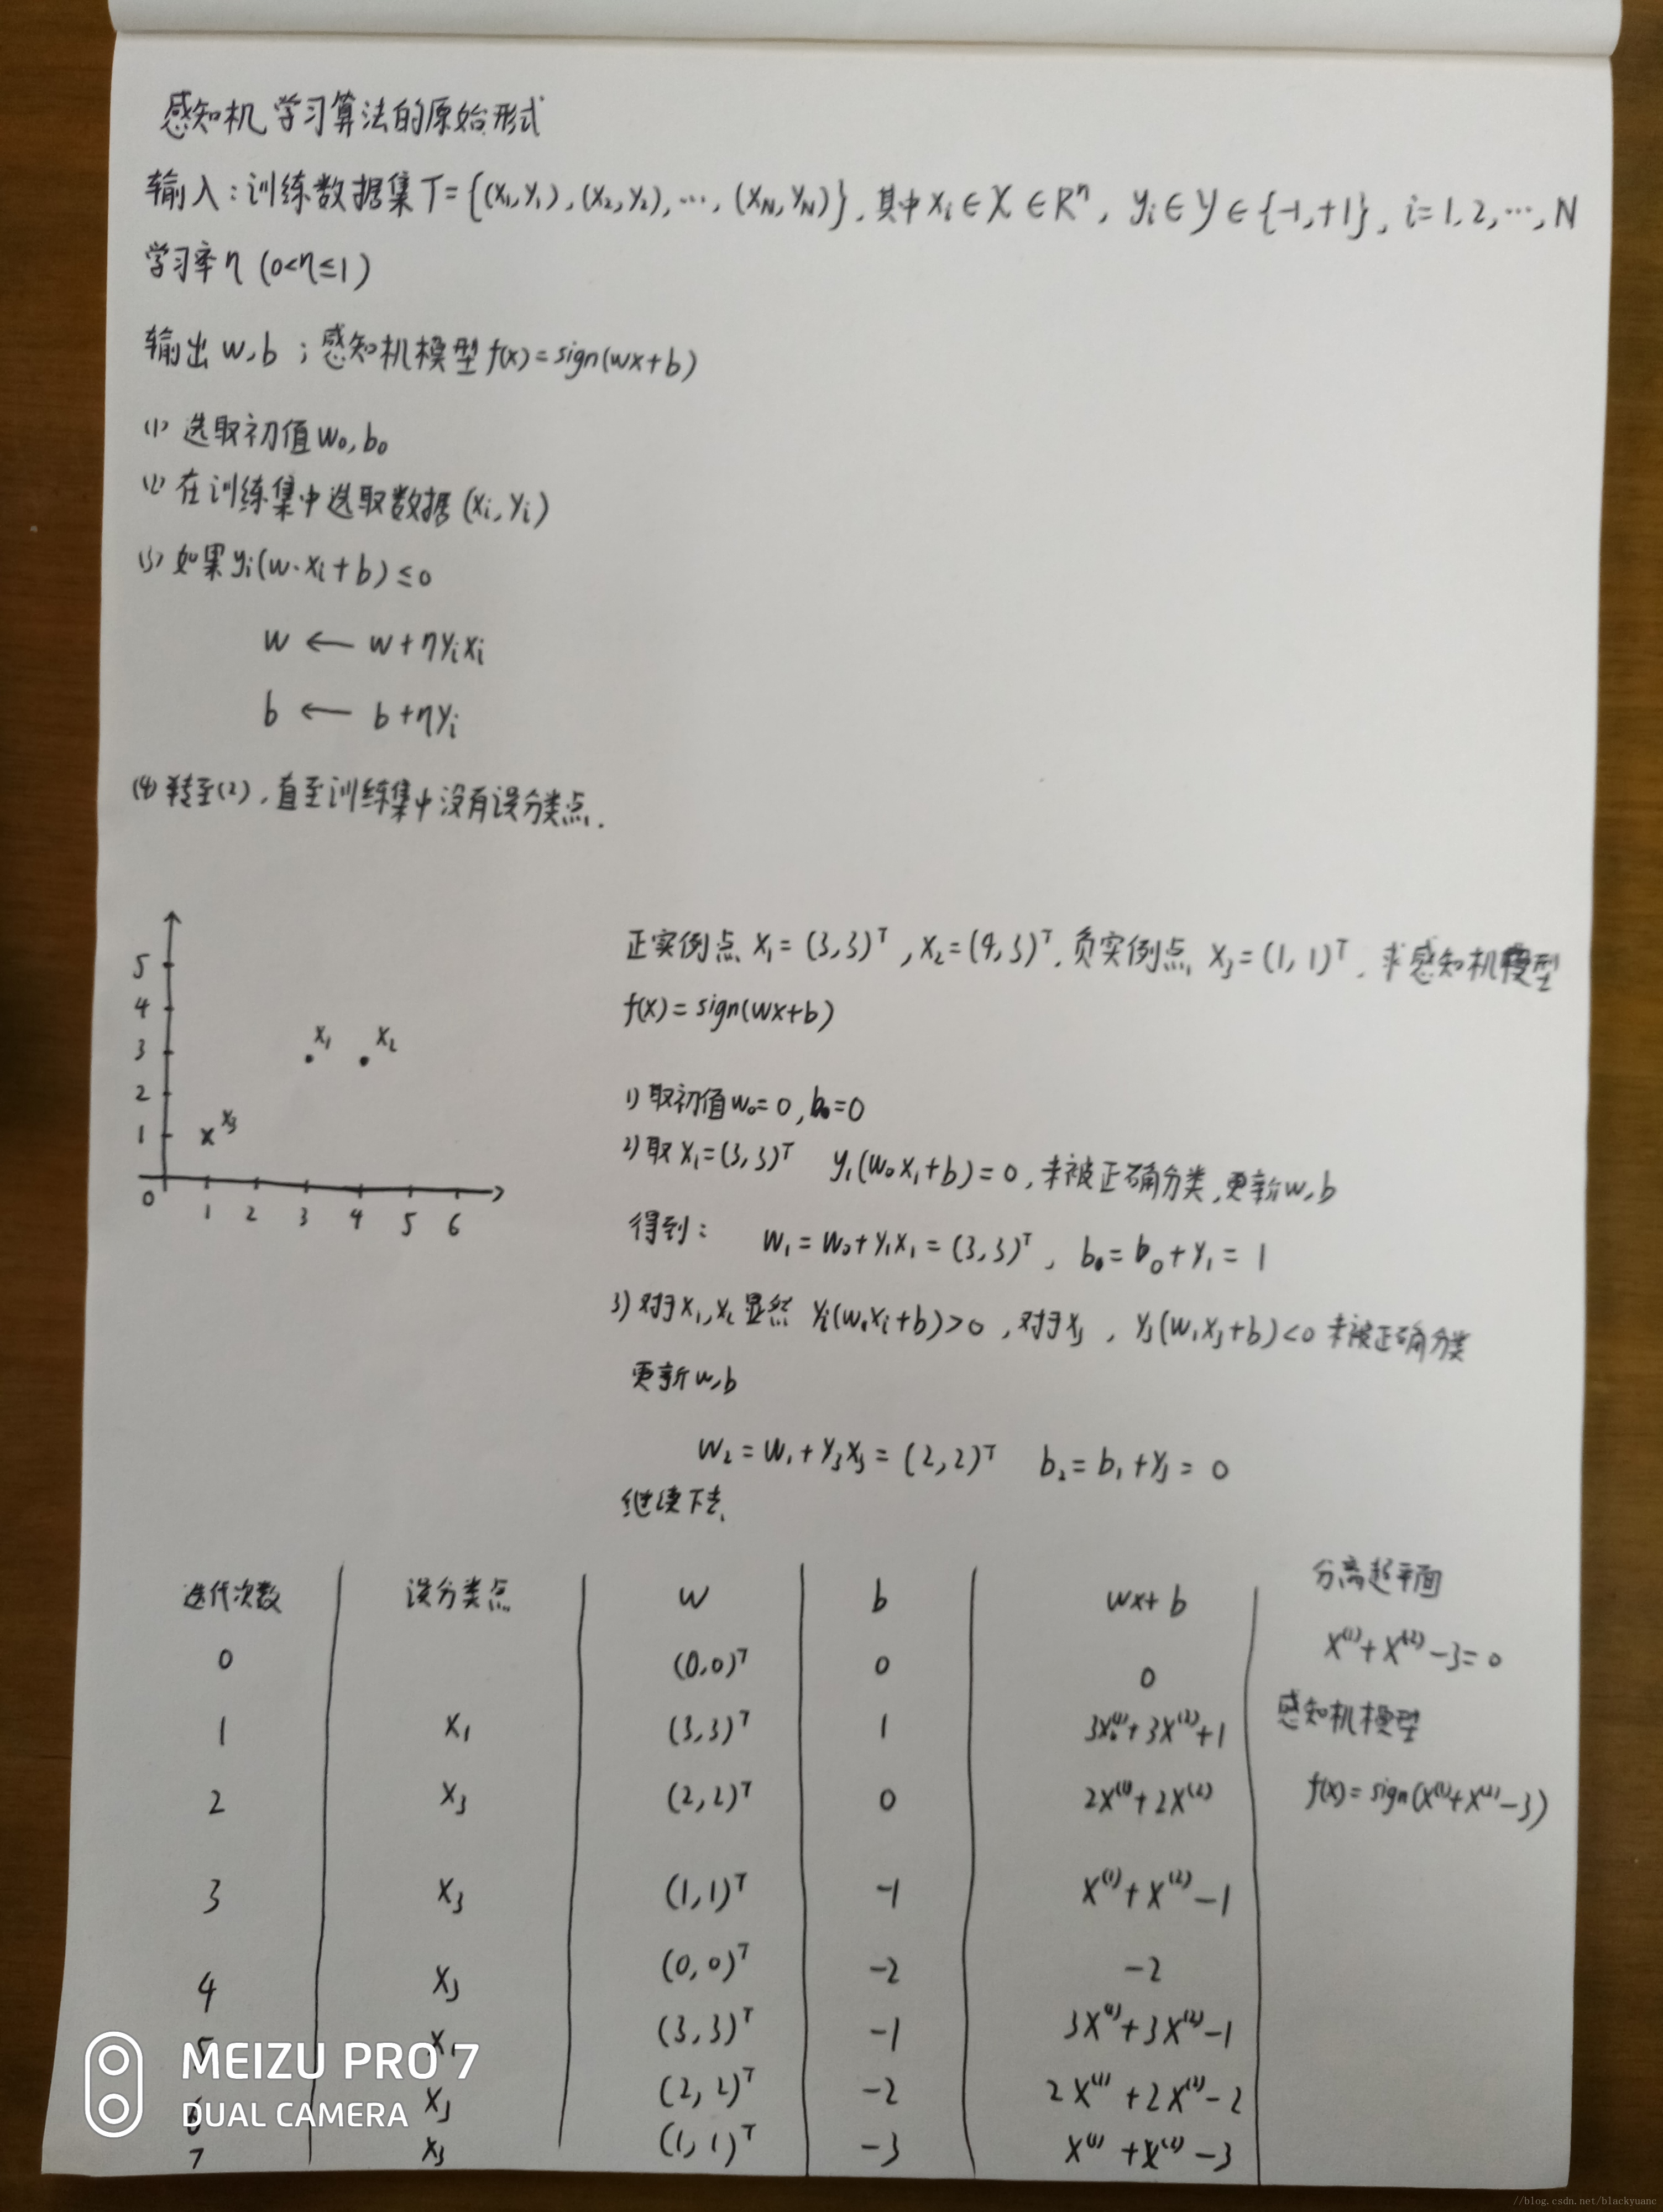 感知机学习算法的原始形式
输入:训练数据集T={(x₁,y₁),(x₂,y₂),…,(x_N,y_N)},其中xᵢ∈X∈Rⁿ,yᵢ∈Y∈{-1,+1},i=1,2,…,N
学习率η(0<η≤1)
输出w,b;感知机模型f(x)=sign(wx+b)
(1)选取初值w₀,b₀
(2)在训练集中选取数据(xᵢ,yᵢ)
(3)如果yᵢ(w·xᵢ+b)≤0
w ← w+ηyᵢxᵢ
b ← b+ηyᵢ
(4)转至(2),直至训练集中没有误分类点.
5
4
3
2
1
0
1 2 3 4 5 6
x₁
x₂
x₃
正实例点x₁=(3,3)ᵀ,x₂=(4,3)ᵀ,负实例点x₃=(1,1)ᵀ,求感知机模型
f(x)=sign(wx+b)
1)取初值w₀=0,b₀=0
2)取x₁=(3,3)ᵀ y₁(w₀x₁+b)=0,未被正确分类,更新w,b
得到: w₁=w₀+y₁x₁=(3,3)ᵀ, b₀=b₀+y₁=1
3)对于x₁,x₂显然 yᵢ(w₁xᵢ+b)>0,对于x₃,y₃(w₁x₃+b)<0未被正确分类
更新w,b
w₂=w₁+y₃x₃=(2,2)ᵀ b₂=b₁+y₃=0
继续下去
迭代次数 误分类点 w b wx+b
0 (0,0)ᵀ 0 0
1 x₁ (3,3)ᵀ 1 3x⁽¹⁾+3x⁽²⁾+1
2 x₃ (2,2)ᵀ 0 2x⁽¹⁾+2x⁽²⁾
3 x₃ (1,1)ᵀ -1 x⁽¹⁾+x⁽²⁾-1
4 x₃ (0,0)ᵀ -2 -2
5 x₁ (3,3)ᵀ -1 3x⁽¹⁾+3x⁽²⁾-1
6 x₃ (2,2)ᵀ -2 2x⁽¹⁾+2x⁽²⁾-2
7 x₃ (1,1)ᵀ -3 x⁽¹⁾+x⁽²⁾-3
分离超平面
x⁽¹⁾+x⁽²⁾-3=0
感知机模型
f(x)=sign(x⁽¹⁾+x⁽²⁾-3)
MEIZU PRO 7
DUAL CAMERA
//blog.csdn.net/blackyuanc